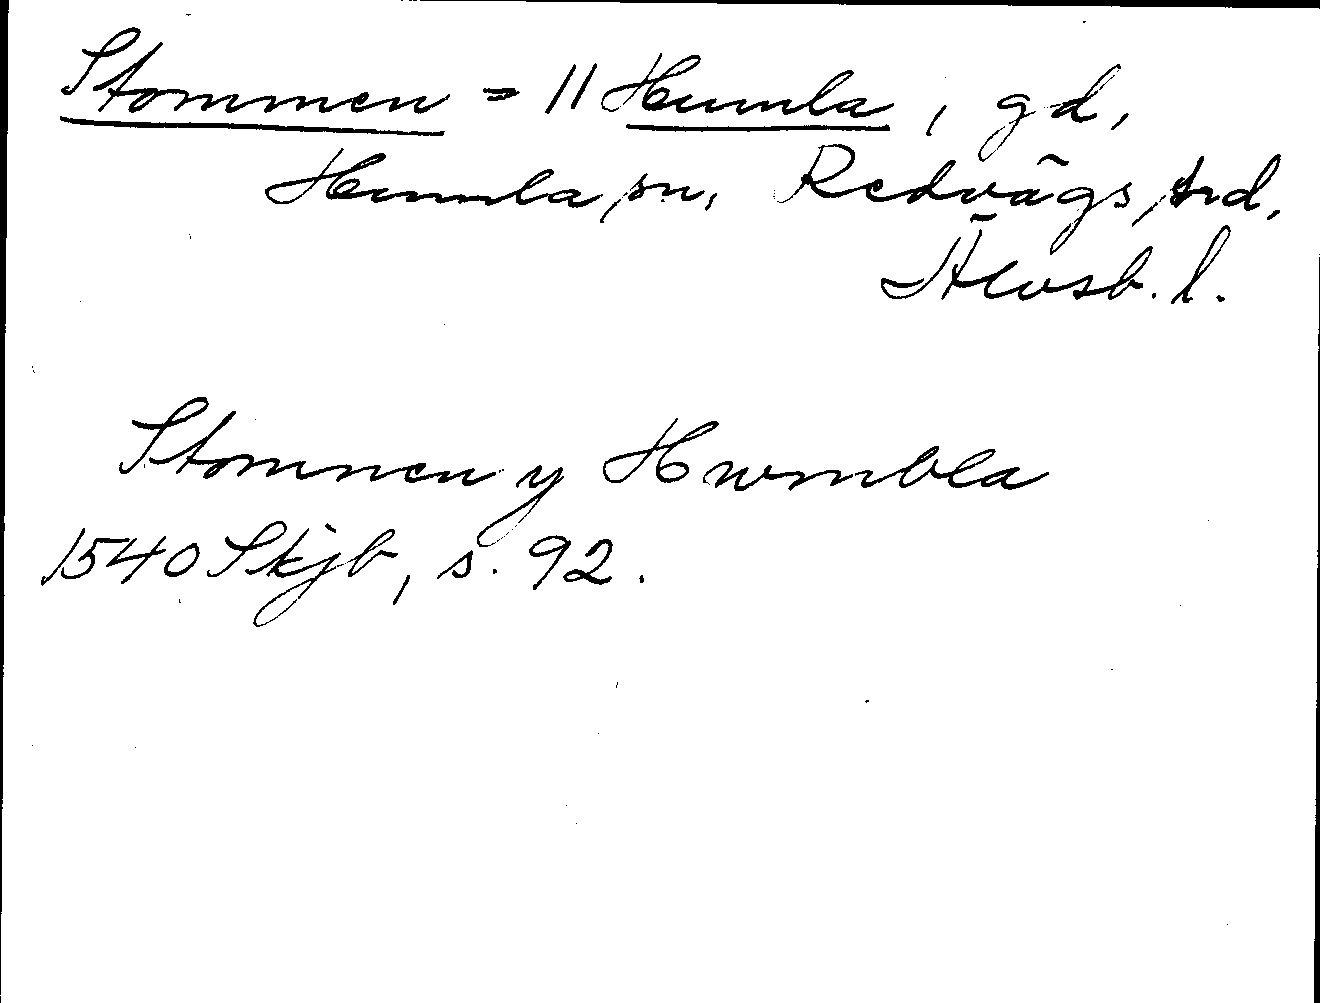 Stommen = 11 Humla, gd,
Humla sn, Redvägs hrd,
Älvsb. l.
Stommen y Hwmbla
1540 Skjb, s. 92.